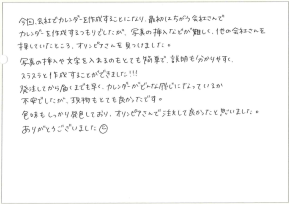 今回、会社でカレンダーを作成することになり、最初はちがう会社さんで
カレンダーを作成するつもりでしたが、写真の挿入などが難しく、他の会社さんを
探していたところ、オリンピアさんを見つけました。
写真の挿入や文字を入れるのもとても簡単で、説明も分かりやすく、
スラスラと作成することができました!!!
発注してから届くまでも早く、カレンダーがどんな感じになっているか
不安でしたが、現物もとても良かったです。
色味もしっかり発色しており、オリンピアさんで注文して良かったと思いました。
ありがとうございました